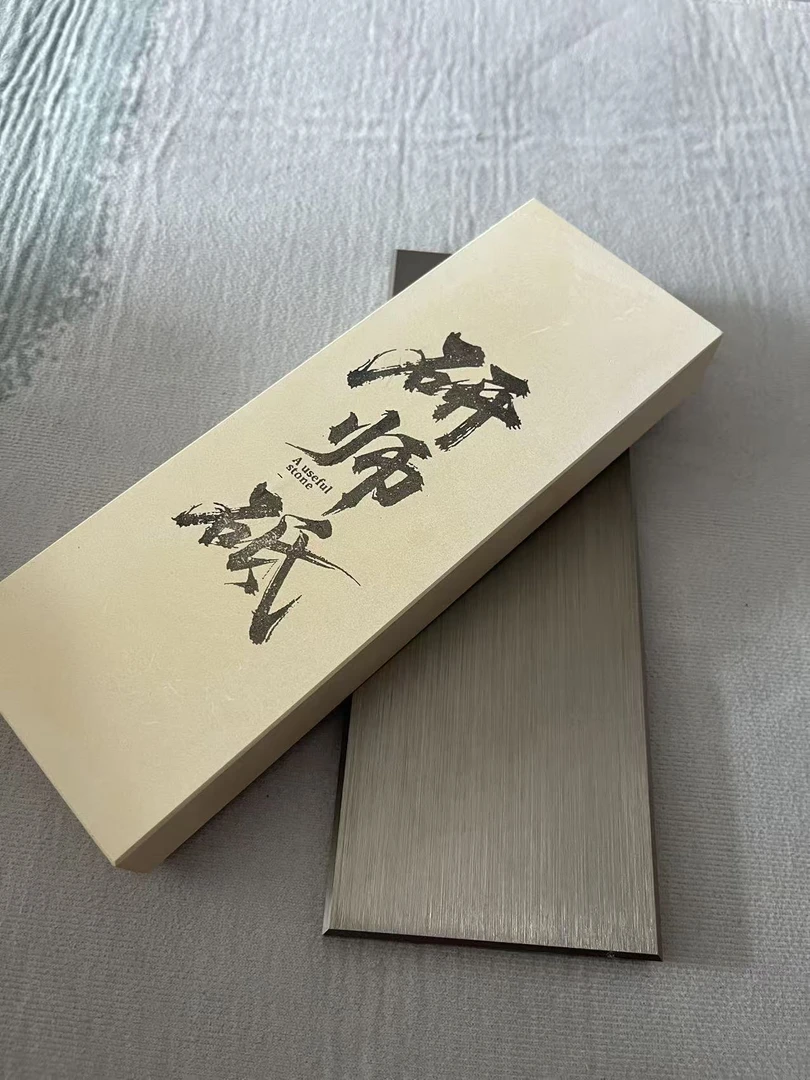 研师砥
A useful
stone